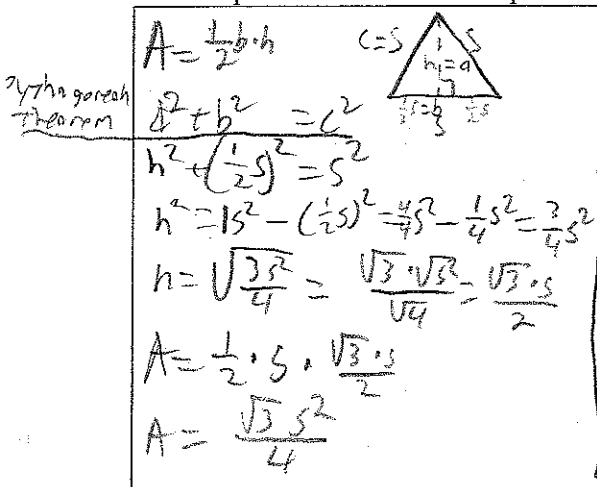 A = 1/2 b·h
c=s
s
h=a
1/2 s=b
1/2 s
s
Pythagorean
Theorem
a² + b² = c²
h² + (1/2 s)² = s²
h² = 1s² - (1/2 s)² = 4/4 s² - 1/4 s² = 3/4 s²
h = √(3s²/4) = √3·√s²/√4 = √3·s/2
A = 1/2 · s · √3·s/2
A = √3 s²/4